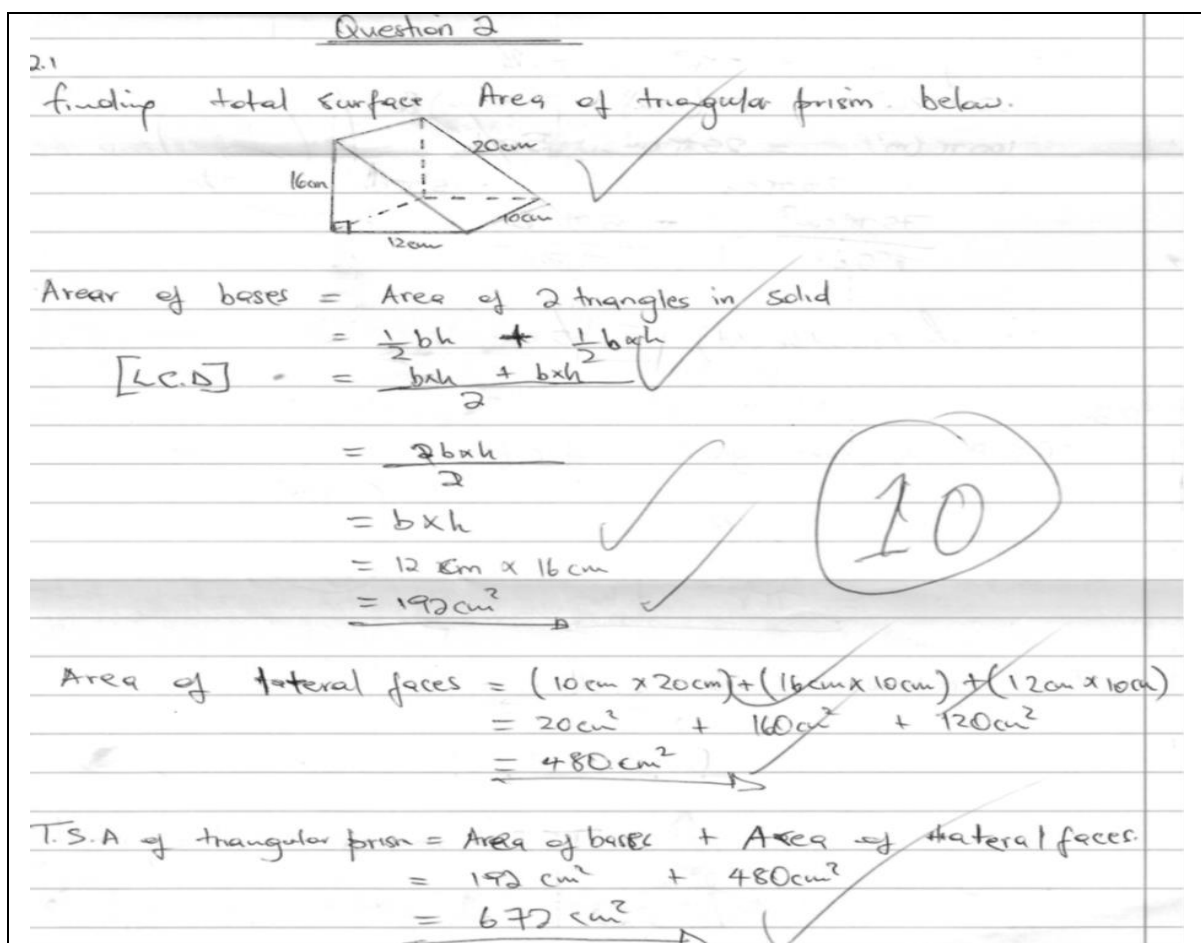 Question 2
2.1
finding total surface Area of triangular prism below.
20cm
16cm
10cm
12cm
Arear of bases = Area of 2 triangles in solid
= 1/2 bh + 1/2 b×h
[L.C.D] = b×h + b×h / 2
= 2b×h / 2
= b×h
= 12 cm × 16 cm
= 192cm²
10
Area of lateral faces = (10cm × 20cm) + (16cm × 10cm) + (12cm × 10cm)
= 20cm² + 160cm² + 120cm²
= 480cm²
T.S.A of triangular prism = Area of bases + Area of lateral faces.
= 192 cm² + 480cm²
= 672 cm²